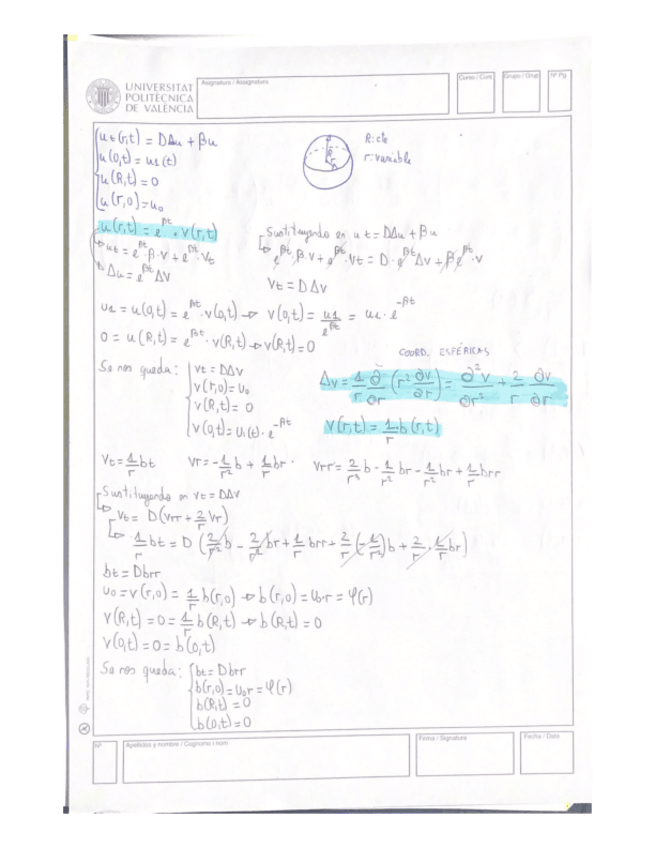 UNIVERSITAT
POLITÈCNICA
DE VALÈNCIA
Asignatura / Assignatura
Curso / Curs
Grupo / Grup
Nº Pg.
ut(r,t) = DΔu + βu
u(0,t) = u1(t)
u(R,t) = 0
u(r,0) = u₀
R: cte
r: variable
u(r,t) = e^βt · v(r,t)
ut = e^βt · β · v + e^βt · vt
Δu = e^βt Δv
Sustituyendo en ut = DΔu + βu
e^βt · β · v + e^βt · vt = D · e^βt Δv + β e^βt · v
vt = DΔv
u1 = u(0,t) = e^βt · v(0,t) → v(0,t) = u1/e^βt = u1 · e^-βt
0 = u(R,t) = e^βt · v(R,t) → v(R,t) = 0
COORD. ESFÉRICAS
Se nos queda:
vt = DΔv
v(r,0) = u₀
v(R,t) = 0
v(0,t) = u1(t) · e^-βt
Δv = 1/r ∂/∂r (r² ∂v/∂r) = ∂²v/∂r² + 2/r ∂v/∂r
v(r,t) = 1/r · b(r,t)
vt = 1/r bt
vr = -1/r² b + 1/r br
vrr = 2/r³ b - 1/r² br - 1/r² br + 1/r brr
Sustituyendo en vt = DΔv
vt = D(vrr + 2/r vr)
1/r bt = D (2/r² b - 2/r² br + 1/r brr + 2/r (-1/r²) b + 2/r · 1/r br)
bt = Dbrr
u₀ = v(r,0) = 1/r b(r,0) → b(r,0) = u₀r = φ(r)
v(R,t) = 0 = 1/r b(R,t) → b(R,t) = 0
v(0,t) = 0 = b(0,t)
Se nos queda:
bt = Dbrr
b(r,0) = u₀r = φ(r)
b(R,t) = 0
b(0,t) = 0
Nº
Apellidos y nombre / Cognoms i nom
Firma / Signatura
Fecha / Data